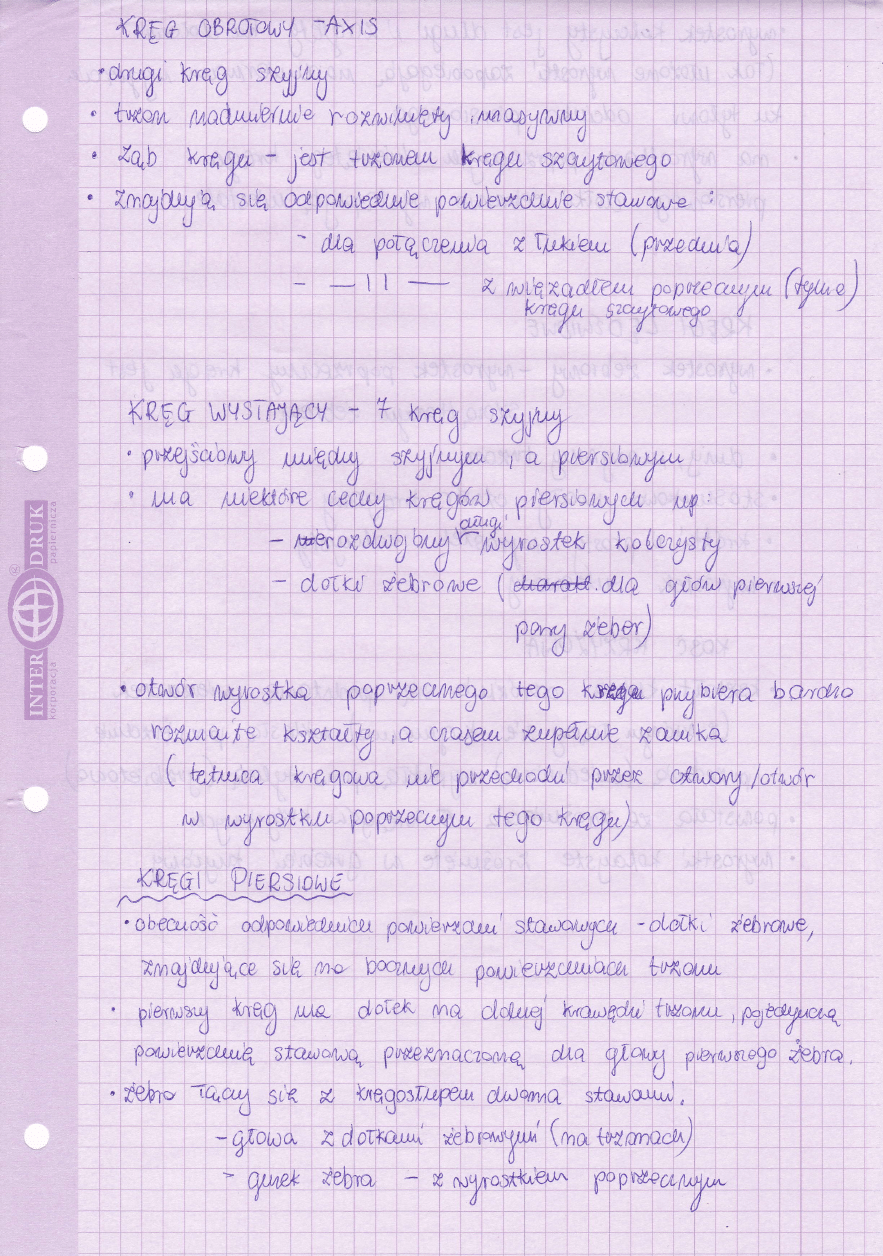 KRĘG OBROTOWY - AXIS
• drugi kręg szyjny
• trzon nadmiernie rozwinięty i masywny
• ząb kręgu - jest trzonem kręgu szczytowego
• znajdują się odpowiednie powierzchnie stawowe :
- dla połączenia z łukiem (przednia)
- —||— z więzadłem poprzecznym (tylna)
kręgu szczytowego
KRĘG WYSTAJĄCY - 7 kręg szyjny
• przejściowy między szyjnym, a piersiowym
• ma niektóre cechy kręgów piersiowych np:
długi
- nierozdwojony wyrostek kolczysty
- dołki żebrowe ( dla głów pierwszej
pary żeber)
• otwór wyrostka poprzecznego tego kręgu przybiera bardzo
rozmaite kształty, a czasem zupełnie zanika
( tętnica kręgowa nie przechodzi przez otwory/otwór
w wyrostku poprzecznym tego kręgu)
KRĘGI PIERSIOWE
• obecność odpowiednich powierzchni stawowych - dołki żebrowe,
znajdujące się na bocznych powierzchniach trzonu
• pierwszy kręg ma dołek na dolnej krawędzi trzonu, pojedynczą
powierzchnię stawową przeznaczoną dla głowy pierwszego żebra.
• żebro łączy się z kręgosłupem dwoma stawami.
- głowa z dołkami żebrowymi (na trzonach)
- guzek żebra - z wyrostkiem poprzecznym
INTER DRUK
korporacja papiernicza